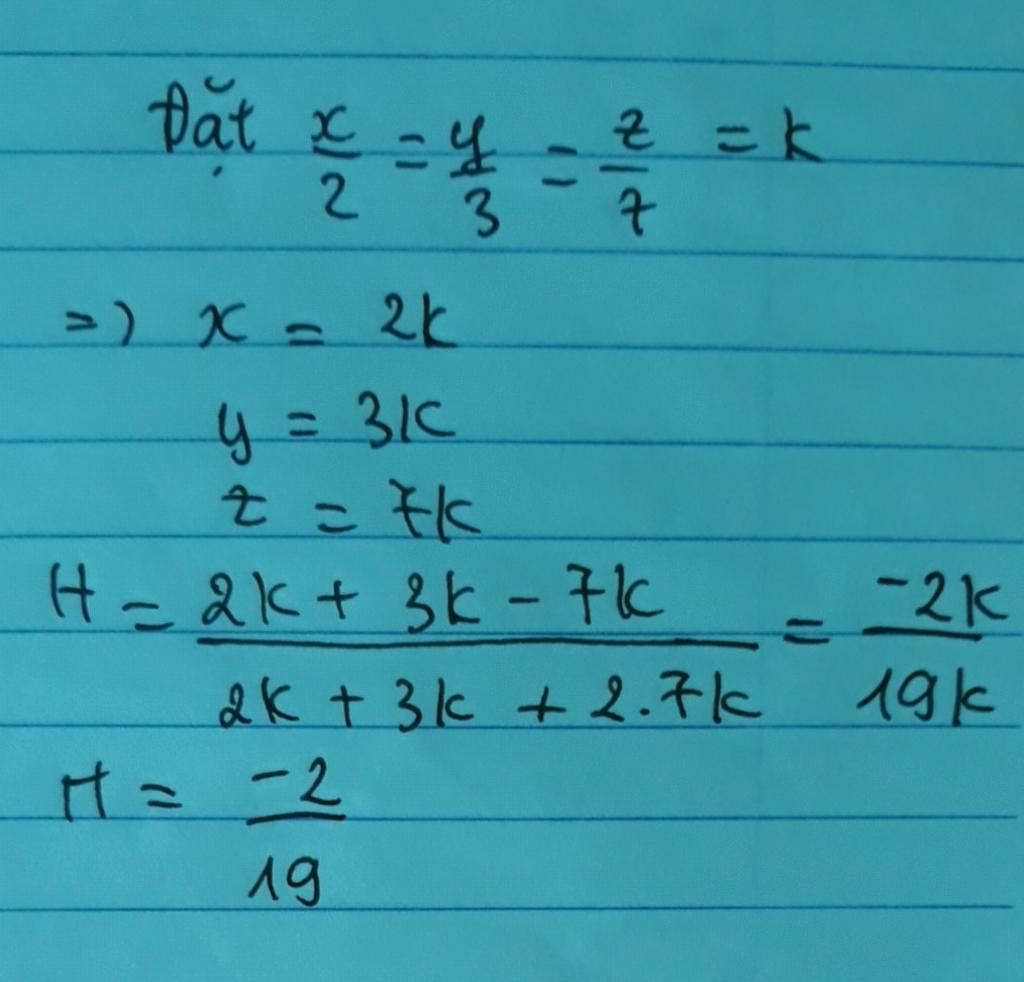 Đặt x/2 = y/3 = z/7 = k
=> x = 2k
y = 3k
z = 7k
H = (2k + 3k - 7k)/(2k + 3k + 2.7k) = -2k/19k
H = -2/19